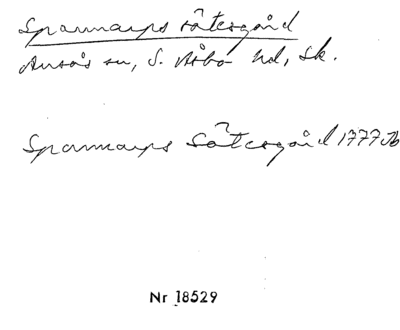 Spannarps sätesgård
Ausås sn, S. Åsbo hd, Sk.
Spannarps Sätesgård 1777 Jb
Nr 18529